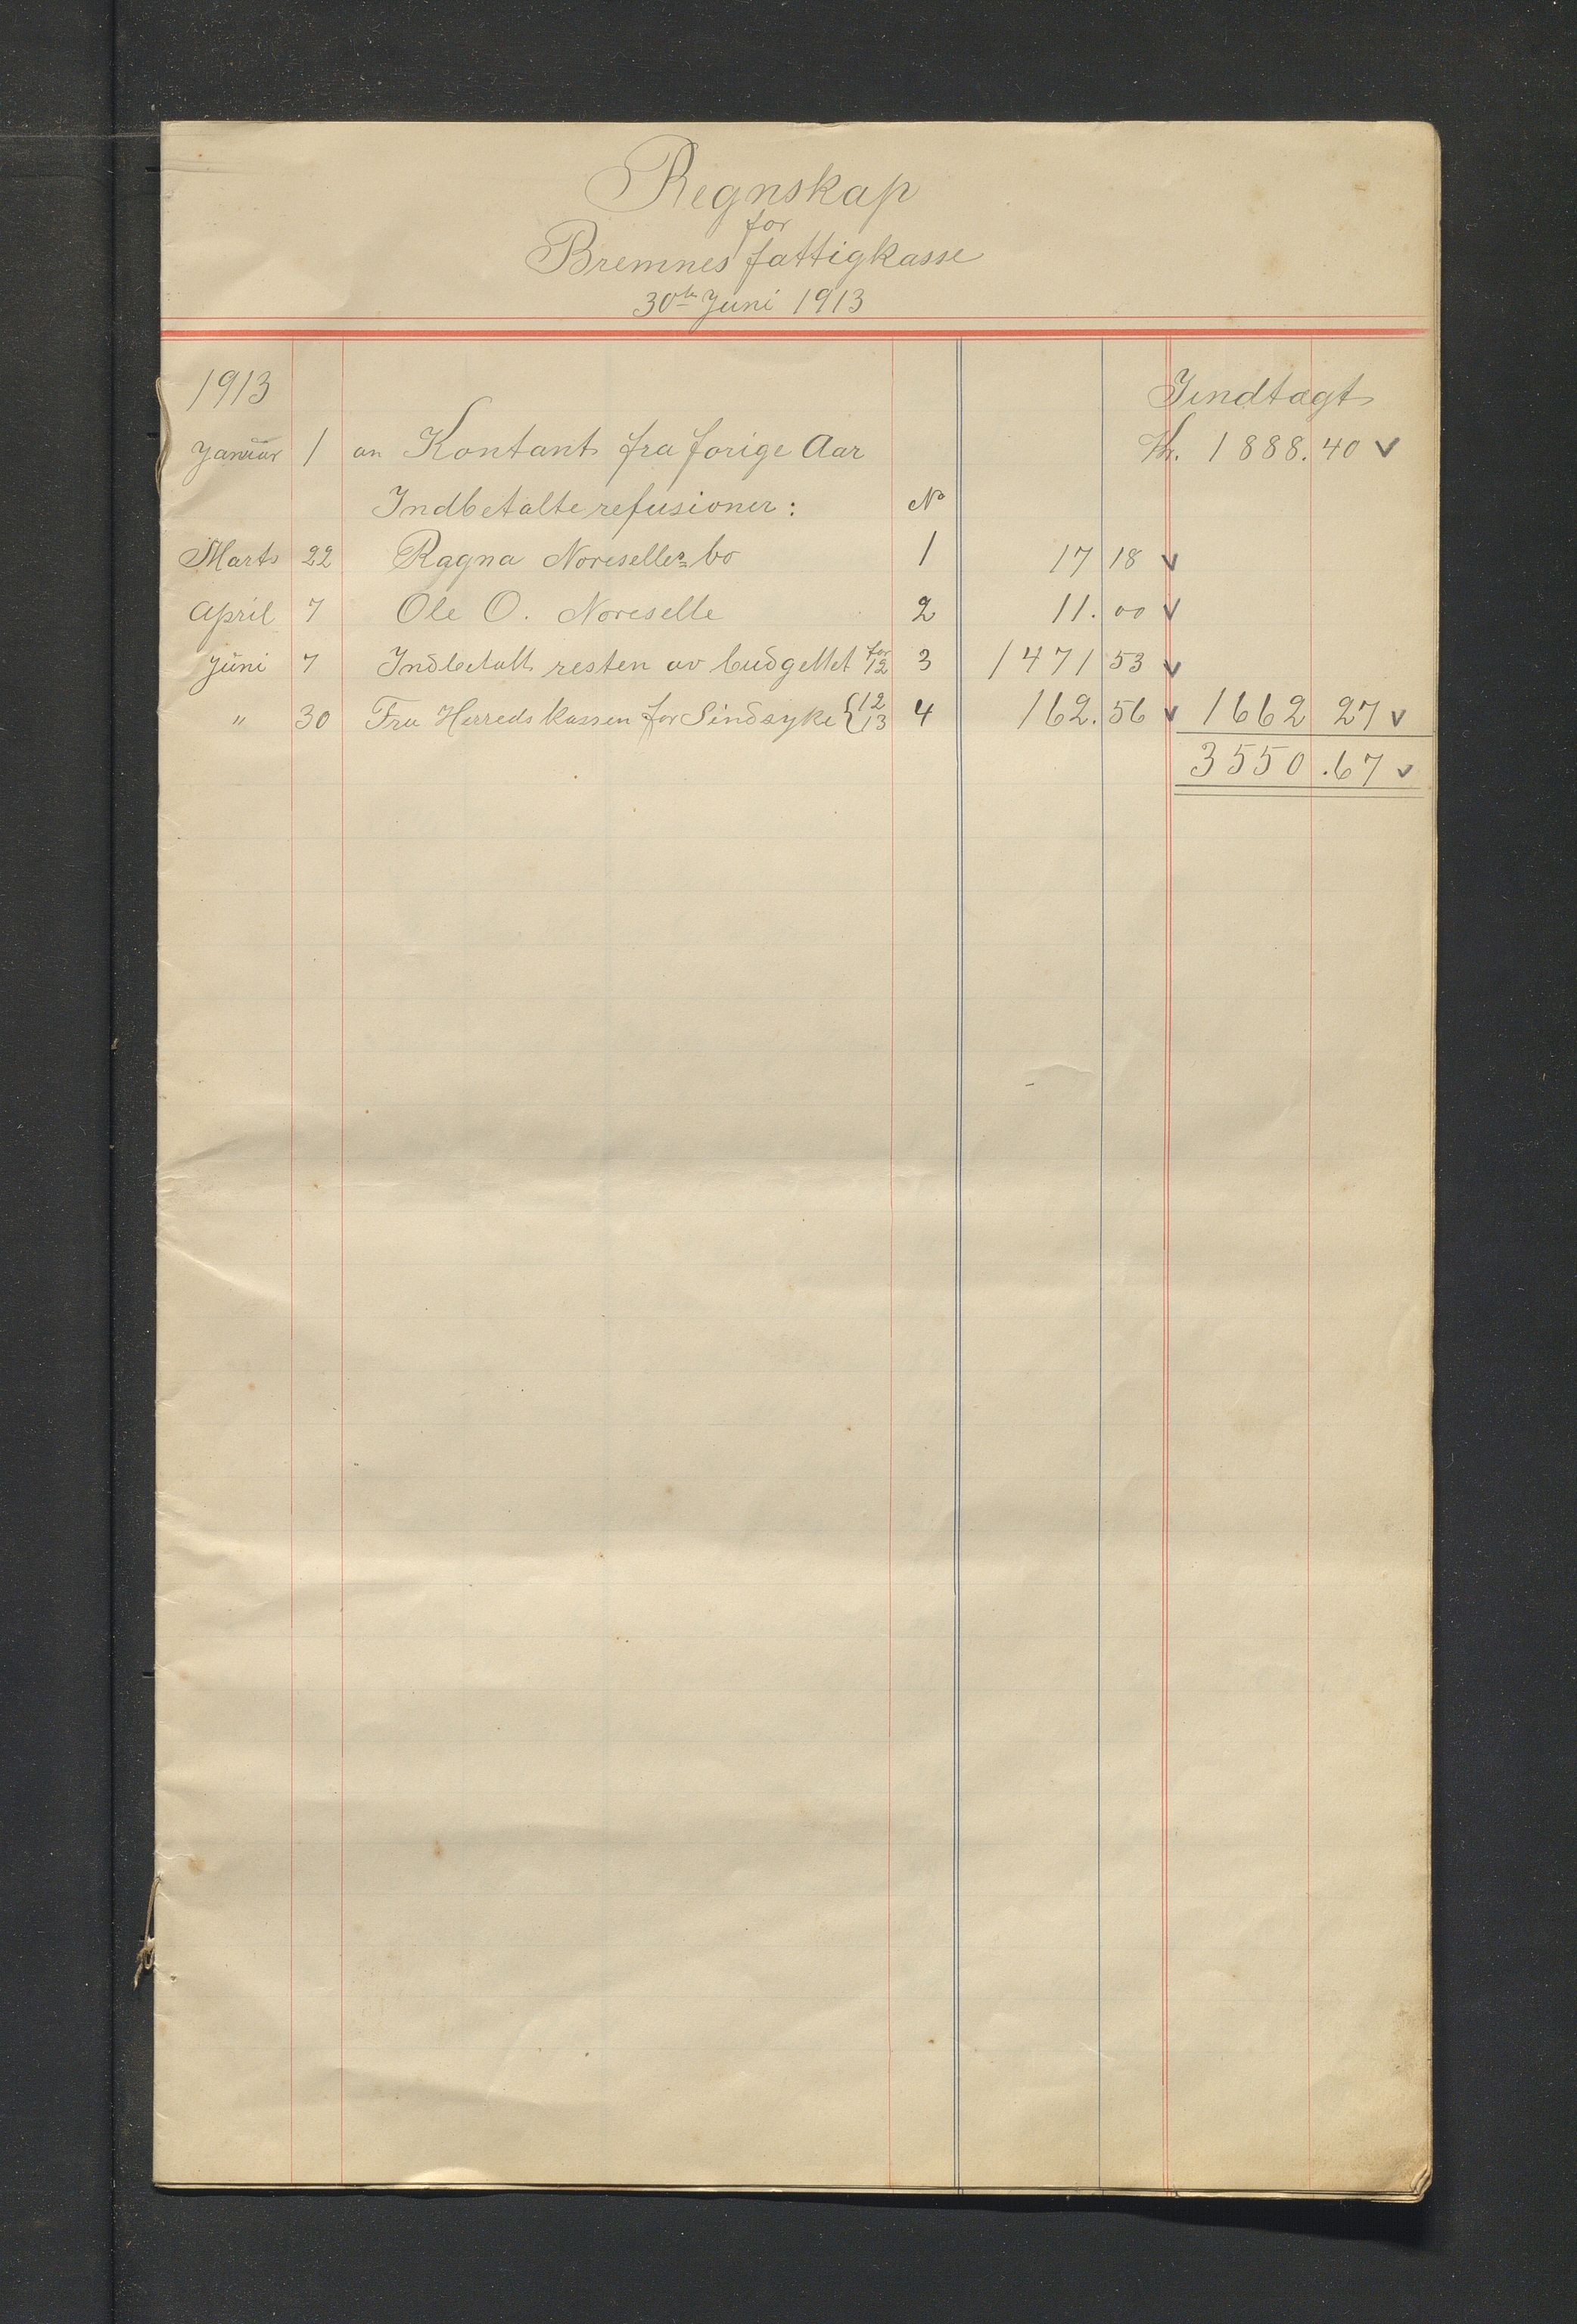 Regnskap
for
Bremnes fattigkasse
30te Juni 1913
1913 Inndtægt
Januar 1 an Kontant fra forige Aar Kr. 1888.40 v
Indbetalte refusioner: No
Marts 22 Ragna Noreselles bo 1 17 18 v
April 7 Ole O. Noreselle 2 11.00 v
Juni 7 Indbetalt resten av budgettet for 12 3 1471 53 v
" 30 Fra Herredskassen for Sindsyke {12 13 4 162.56 v 1662 27 v
3550.67 v